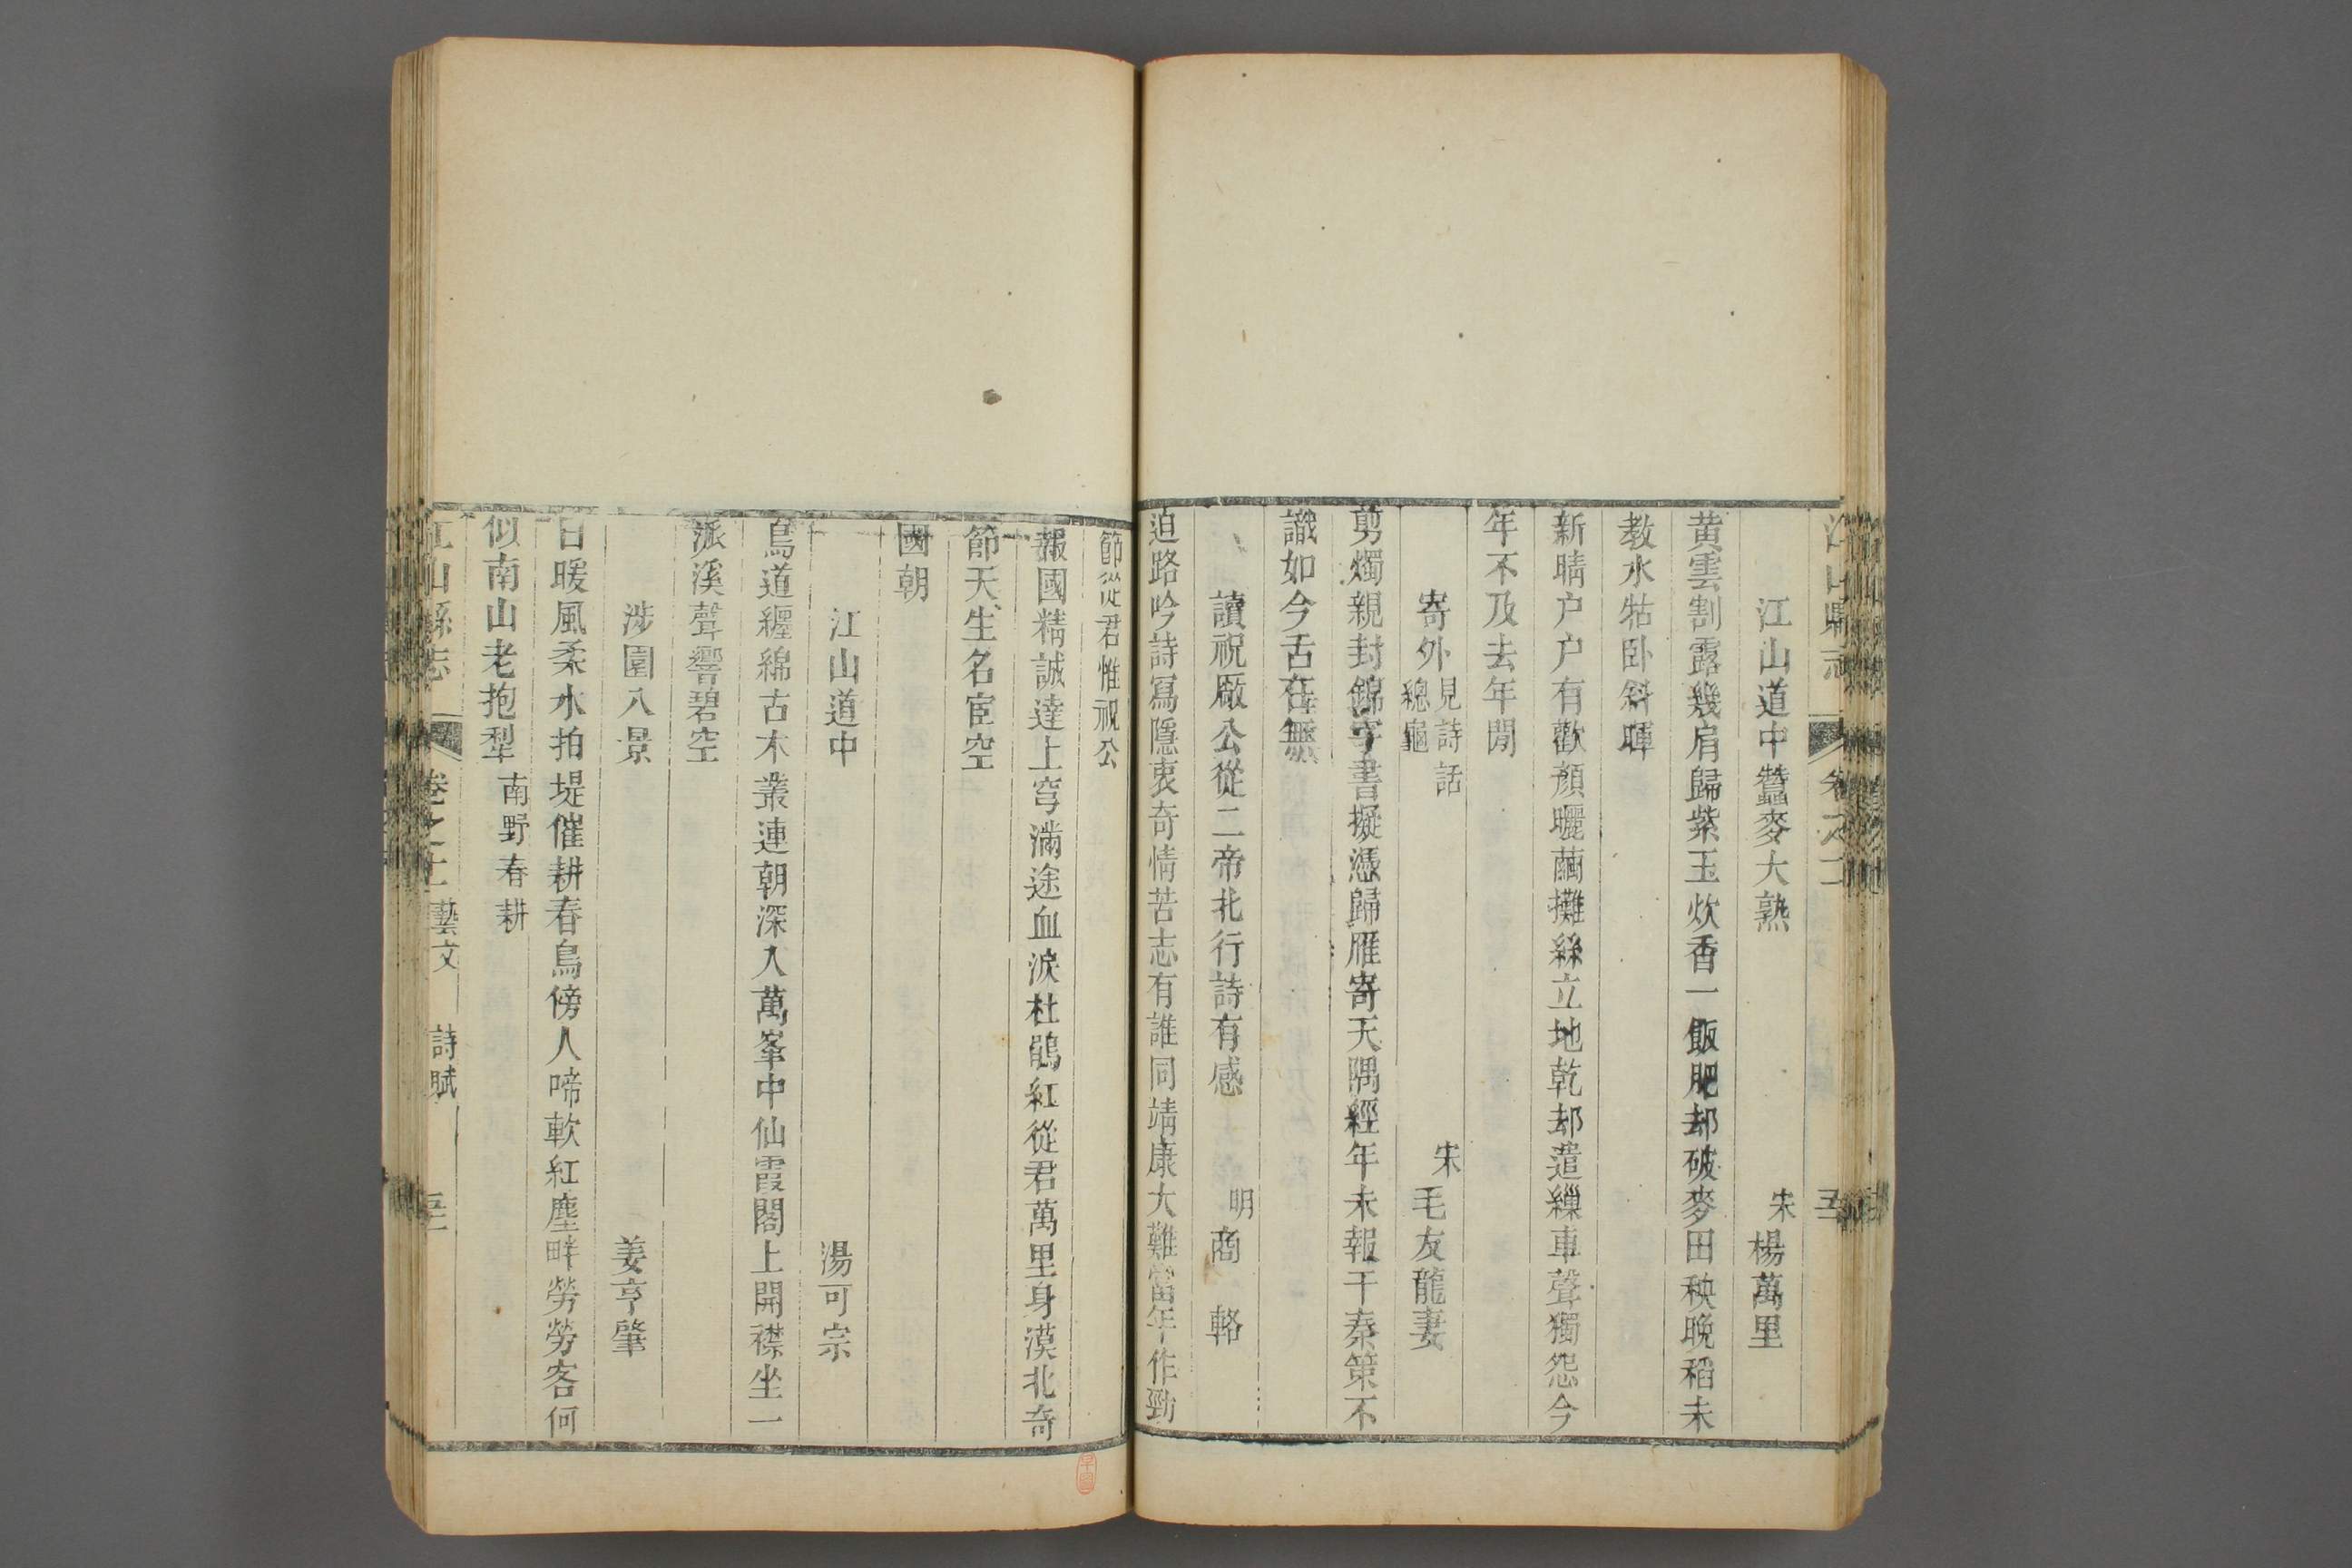 江山縣志 卷之十二
江山道中蠶麥大熟 宋 楊萬里
黄雲割露幾肩歸紫玉炊香一飯肥却破麥田秧晚稻未
教水牯卧斜暉
新晴户户有歡顏曬繭攤絲立地乾却遣繅車聲獨怨今
年不及去年閒
寄外 見詩話總龜 宋 毛友龍妻
剪燭親封錦字書擬憑歸雁寄天隅經年未報干秦策不
識如今舌在無
讀祝厰公從二帝北行詩有感 明 商輅
迫路吟詩寫隱衷奇情苦志有誰同靖康大難當年作勁
節從君惟祝公
報國精誠達上穹滿途血淚杜鵑紅從君萬里身漠北奇
節天生名宦空
國朝
江山道中 湯可宗
鳥道纏綿古木叢連朝深入萬峯中仙霞閣上開襟坐一
派溪聲響碧空
涉園八景 姜亨肇
日暖風柔水拍堤催耕春鳥傍人啼軟紅塵畔勞勞客何
似南山老抱犁 南野春耕
江山縣志 卷之十二 藝文 詩賦